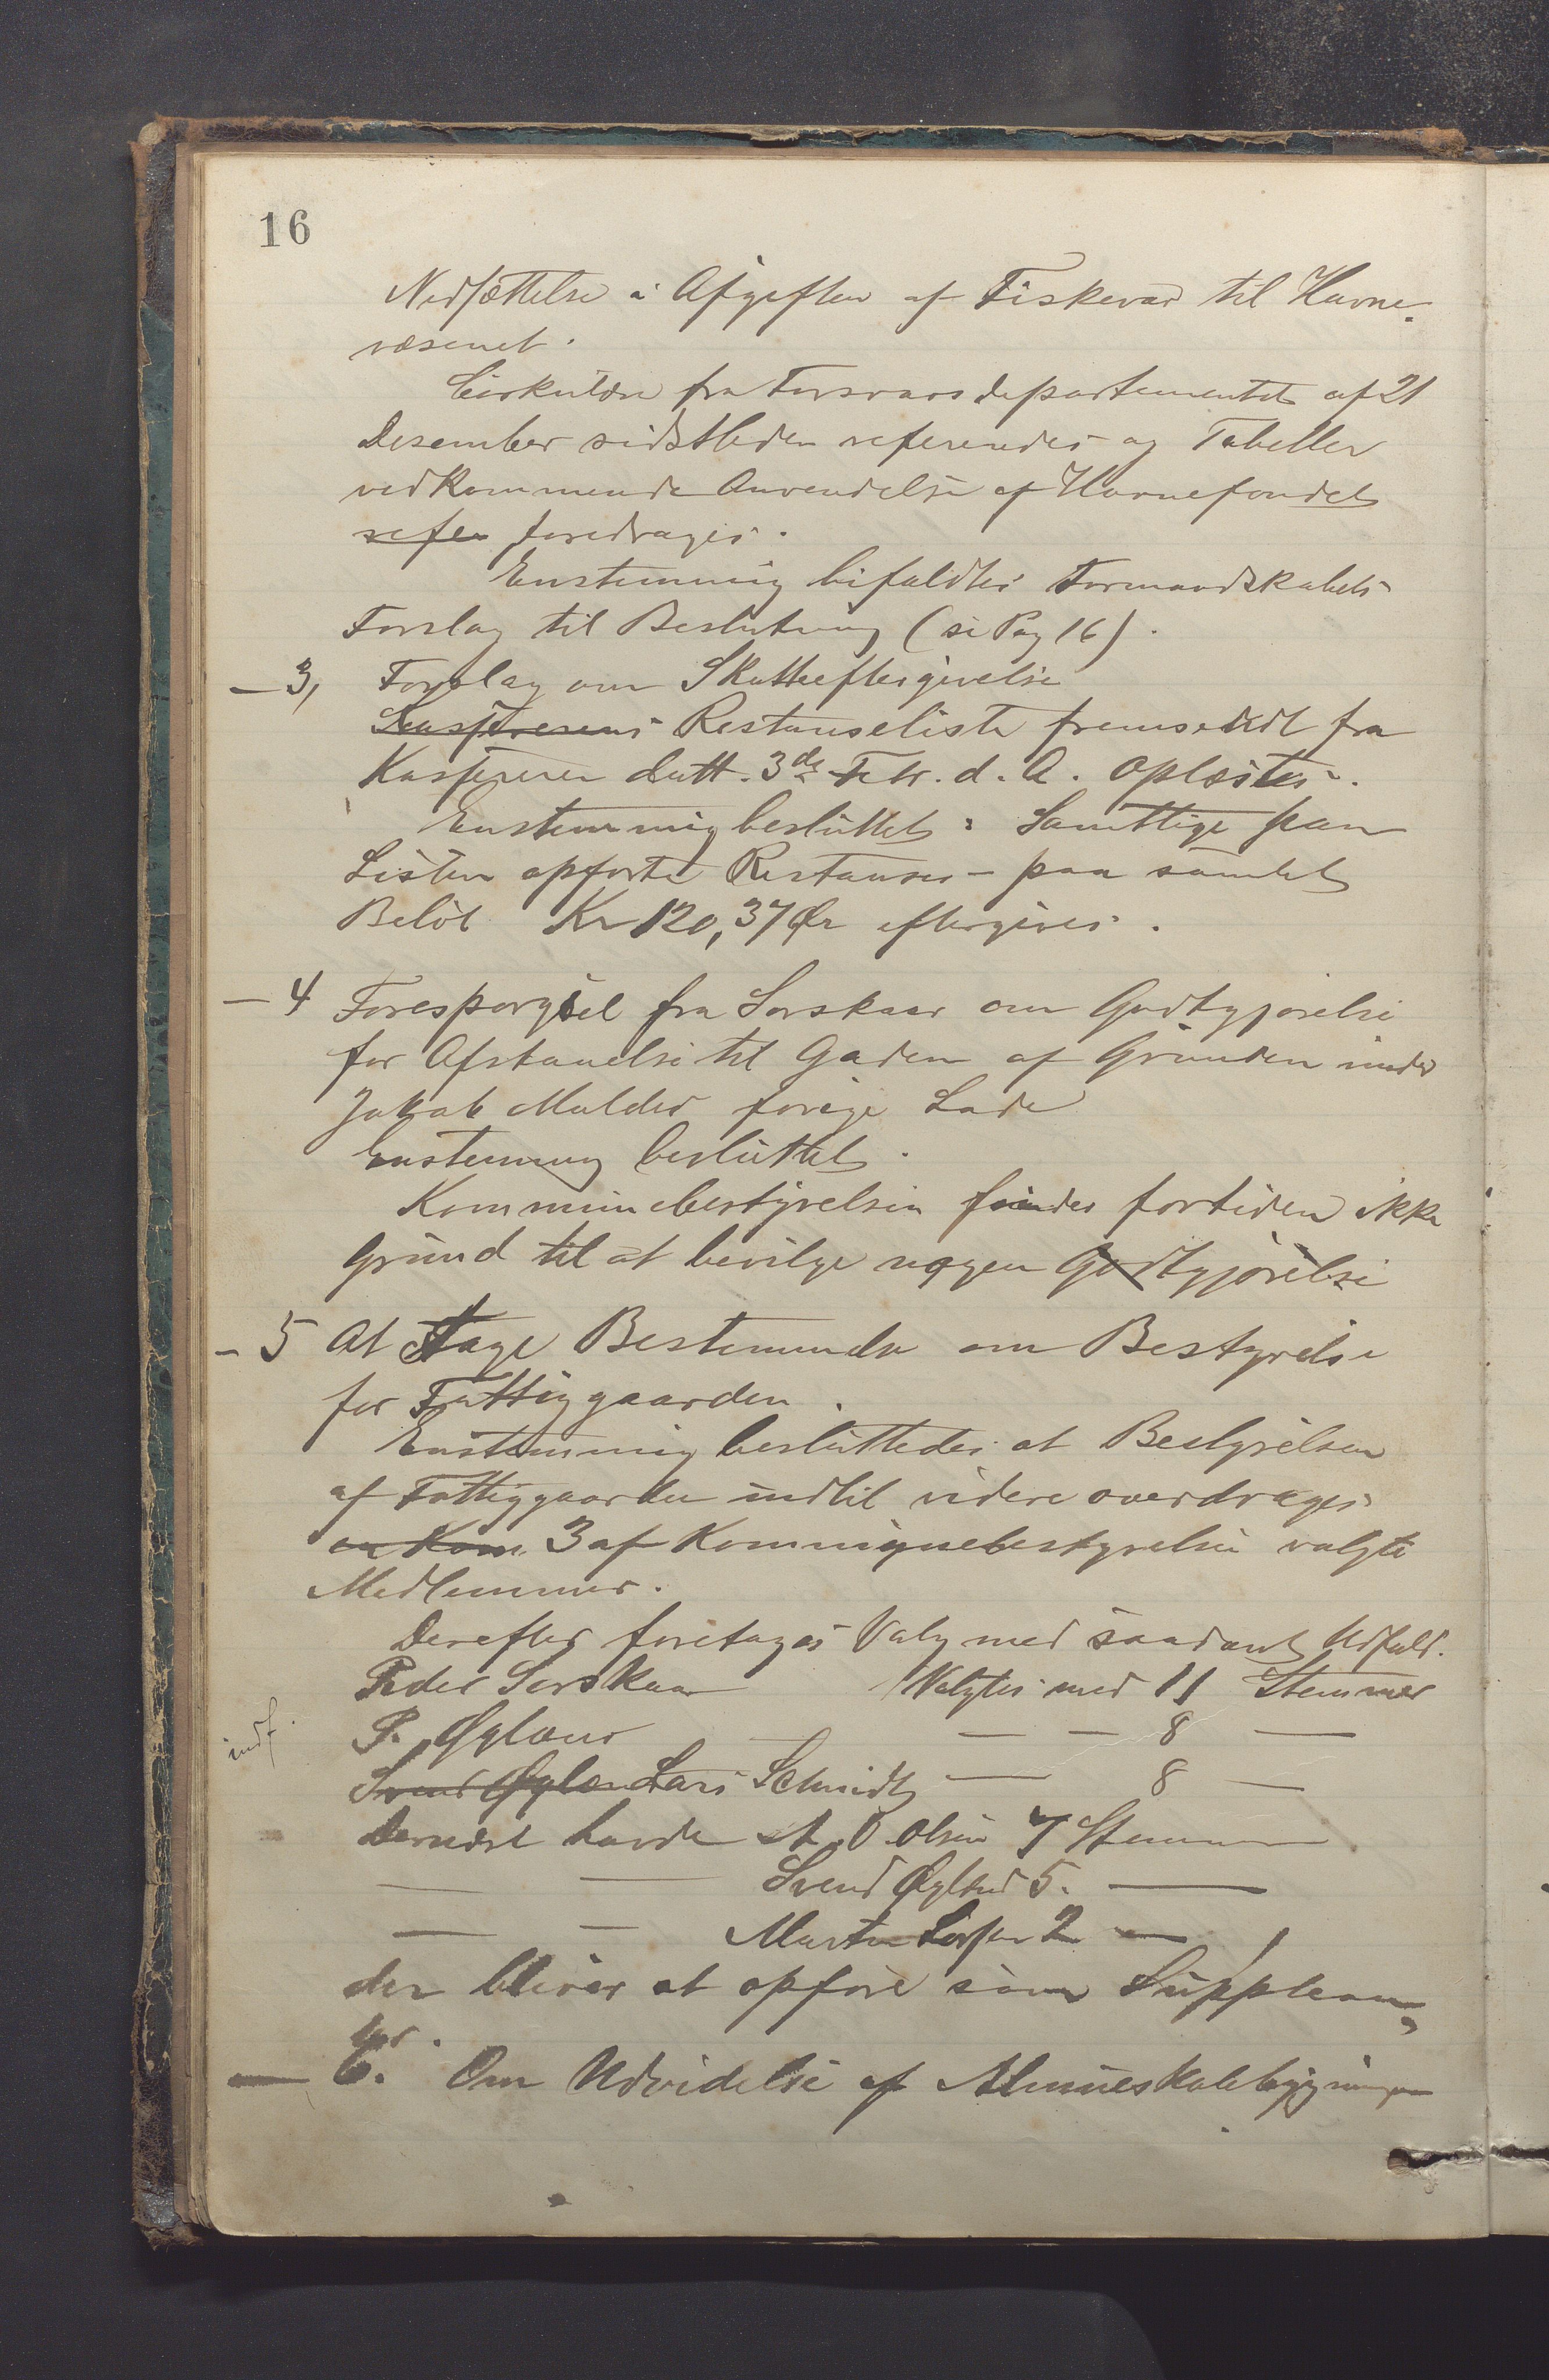 16
Nedsættelse i Afgiften af Fiskevær til Havne-
væsenet.
Cirkulære fra Forsvarsdepartementet af 21
Desember sidstleden refereredes og Tabeller
vedkommende Anvendelse af Havnefondet
refer foredrages.
Enstemmig bifaldtes Formandskabets
Forslag til Beslutning (se Pag 16).
— 3, Forslag om Skatteeftergivelse
Kassererens Restanseliste fremsendt fra
Kassereren datt. 3de Febr. d. A. oplæstes.
Enstemmig besluttet: Samtlige paa
Listen opførte Restanser – paa samlet
Beløb Kr 120,37 Ør eftergives.
— 4 Forespørgsel fra Sørskaar om Godtgjørelse
for Afstaaelse til Gaden af Grunden under
Jakob Mulders forrige Lade
Enstemmig besluttet.
Kommunebestyrelsen findes fortiden ikke
Grund til at bevilge nogen Godtgjørelse
- 5 At tage Bestemmelse om Bestyrelse
for Fattiggaarden.
Enstemmig besluttedes at Bestyrelsen
af Fattiggaarden indtil videre overdrages
en Kom. 3 af Kommunebestyrelsen valgte
Medlemmer.
Derefter foretages Valg med saadant Udfald.
Peder Sørskaar Valgtes med 11 Stemmer
indf. P. Øglænd — — 8 —
Svend Øglænd Lars Schmidt — 8 —
Dernæst havde A. O. Olsen 7 Stemmer
— — Svend Øglænd 5. —
— — Martin 2 —
der bliver at opføre som Supplean-
ter.
— 6. Om Udvidelse af Almueskolebygningen